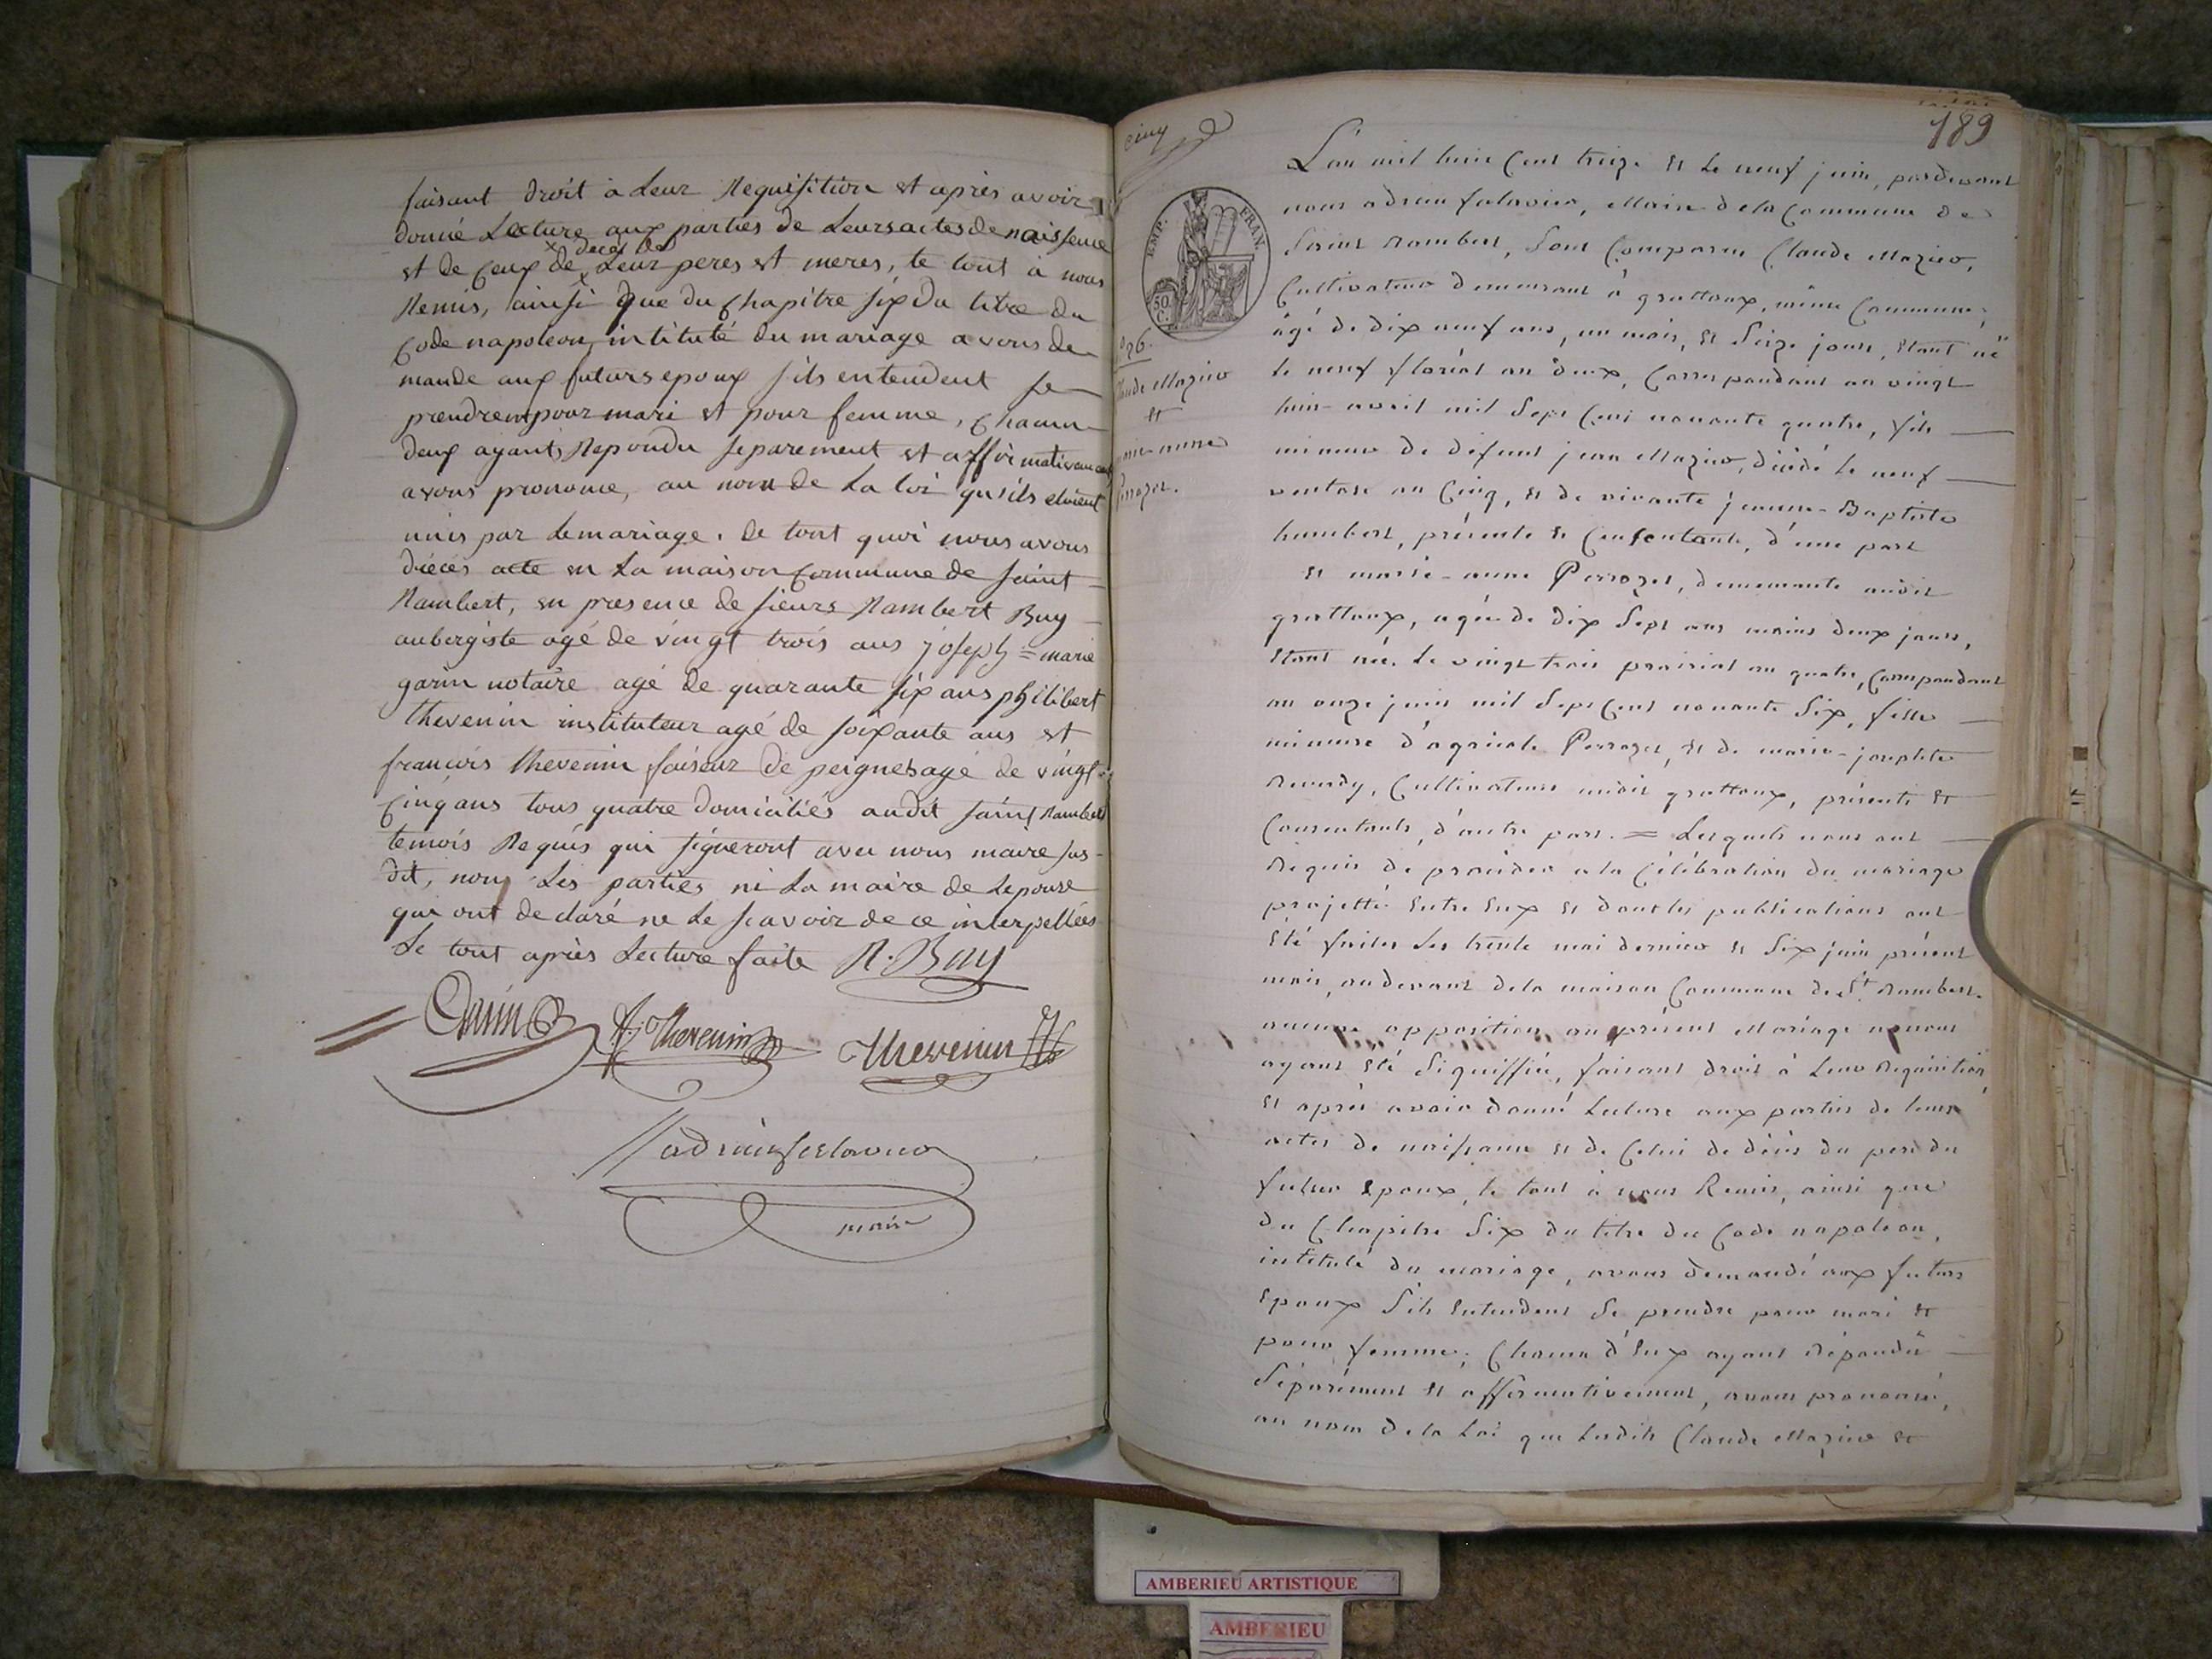 faisant droit à Leur Requisition et après avoir
donné Lecture aux parties de Leurs actes de naissence
décès des
et de Ceux de Leur peres et meres, le tout à nous
Remis, ainsi que du Chapitre six du titre du
Code napoleon, intitulé du mariage avons de
mande aux futurs epoux s'ils entendent se
prendre pour mari et pour femme, Chacun
deux ayant Repondu separement et affirmativement
avons prononcé, au nom de La loi qu'ils etoient
unis par Le mariage. de tout quoi nous avons
acte en La maison Commune de saint
Rambert, en presence de sieurs Rambert Buy
aubergiste agé de vingt trois ans joseph = marie
garin notaire agé de quarante six ans philibert
thevenin instituteur agé de soixante ans et
francois thevenin faiseur de peignes agé de vingt
Cinq ans tous quatre domiciliés audit saint Rambert
temois Requis qui signeront avec nous maire sus-
dit, non Les parties ni La maire de Lepouse
qui ont declaré ne Le scavoir de ce interpellées
Le tout après Lecture faite R. Buy
Garin
Thevenin
Thevenin
maire
Cinq
189
EMP. FRAN.
50 C.
Claude Mazier
et
marie anne
Perrozet.
L'an mil huit Cent treize et Le neuf juin, pardevant
nous adrien falavier, Maire de la Commune de
Saint Rambert, Sont Comparus Claude Mazier,
Cultivateur demeurant à grattoux, même Commune,
âgé de dix neuf ans, un mois, et Seize jours, étant né
le neuf floréal an deux, Correspondant au vingt
huit avril mil Sept Cent nonante quatre, fils
mineur de défunt jean Mazier, décédé le neuf
ventose an Cinq, et de vivante jeanne-Baptiste
humbert, présente et Consentante, d'une part
Et marie-anne Perrozet, demeurante audit
grattoux, agée de dix Sept ans moins deux jours,
étant née le vingt trois prairial an quatre, Correspondant
au onze juin mil Sept Cent nonante Six, fille
mineure d'agricole Perrozet, et de marie-josephte
Reverdy, Cultivateurs audit grattoux, présents et
Consentants, d'autre part. = Lesquels nous ont
Requis de procéder a la Célébration du mariage
projetté entre eux et dont les publications ont
été faites Les trente mai dernier et Six juin présent
mois, au devant de la maison Commune de St Rambert.
aucune opposition au présent Mariage ne nous
ayant été Signiffiée, faisant droit à Leur Requisition,
et après avoir donné Lecture aux parties de leurs
actes de naissance et de Celui de décès du pere du
futur époux, le tout à nous Remis, ainsi que
du Chapitre Six du titre du Code napoleon,
intitulé du mariage, avons demandé aux futurs
époux S'ils entendent Se prendre pour mari et
pour femme; Chacun d'eux ayant Répondu
Séparément et affirmativement, avons prononcé,
au nom de la Loi que Lesdits Claude Mazier et
AMBERIEU ARTISTIQUE
AMBERIEU